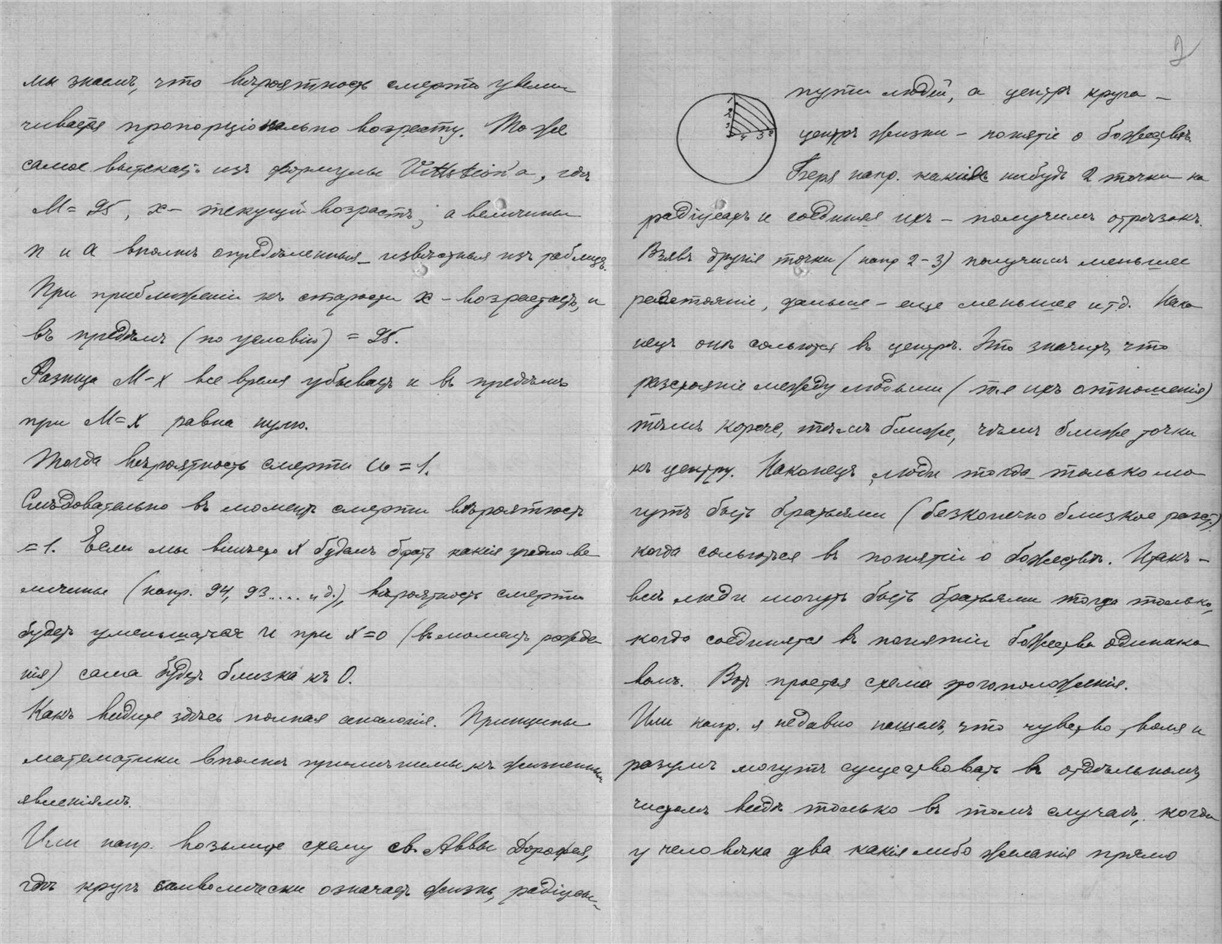 мы знаемъ, что вѣроятность смерти увели
чивается пропорціонально возрасту. То же
самое вытекаетъ изъ формулы Vittstein'a, гдѣ
M = 95, x – текущій возрастъ, а величины
n и a вполнѣ опредѣленныя – извѣстныя изъ таблицъ.
При приближеніи къ старости x – возрастаетъ, и
въ предѣлѣ (по условію) = 95.
Разница M – x все время убываетъ и въ предѣлѣ
при M = x равна нулю.
Тогда вѣроятность смерти = 1.
Слѣдовательно въ моментъ смерти вѣроятность
= 1. Если мы вмѣсто x будемъ брать какія угодно ве
личины (напр. 94, 93.... и д.), вѣроятность смерти
будетъ уменьшаться и при x = 0 (въ моментъ рожде
нія) сама будетъ близка къ 0.
Какъ видите здѣсь полная аналогія. Принципы
математики вполнѣ приличимы къ жизненнымъ
явленіямъ.
Или напр. возьмите схему св. Аввы Дорофея,
гдѣ кругъ символически означаетъ жизнь, радіусы –
2
пути людей, а центръ круга –
центръ жизни – понятіе о божествѣ.
Беря напр. какія нибудь 2 точки на
радіусахъ и соединяя ихъ – получимъ отрѣзокъ.
Взявъ другія точки (напр 2-3) получимъ меньшее
разстояніе, дальше – еще меньшее и т.д. Нако
нецъ они сольются въ центрѣ. Это значитъ, что
разстояніе между людьми (т.е ихъ отношенія)
тѣмъ короче, тѣмъ ближе, чѣмъ ближе точки
къ центру. Наконецъ, люди тогда только мо
гутъ быть братьями (безконечно близкое разст.)
когда сольются въ понятіи о божествѣ. Итакъ –
всѣ люди могутъ быть братьями тогда только,
когда соединятся въ понятіи божества одинако
вомъ. Вотъ простая схема этого положенія.
Или напр. я недавно нашелъ, что чувство, воля и
разумъ могутъ существовать въ отдѣльномъ,
чистомъ видѣ только въ томъ случаѣ, когда
у человѣка два какія либо желанія прямо